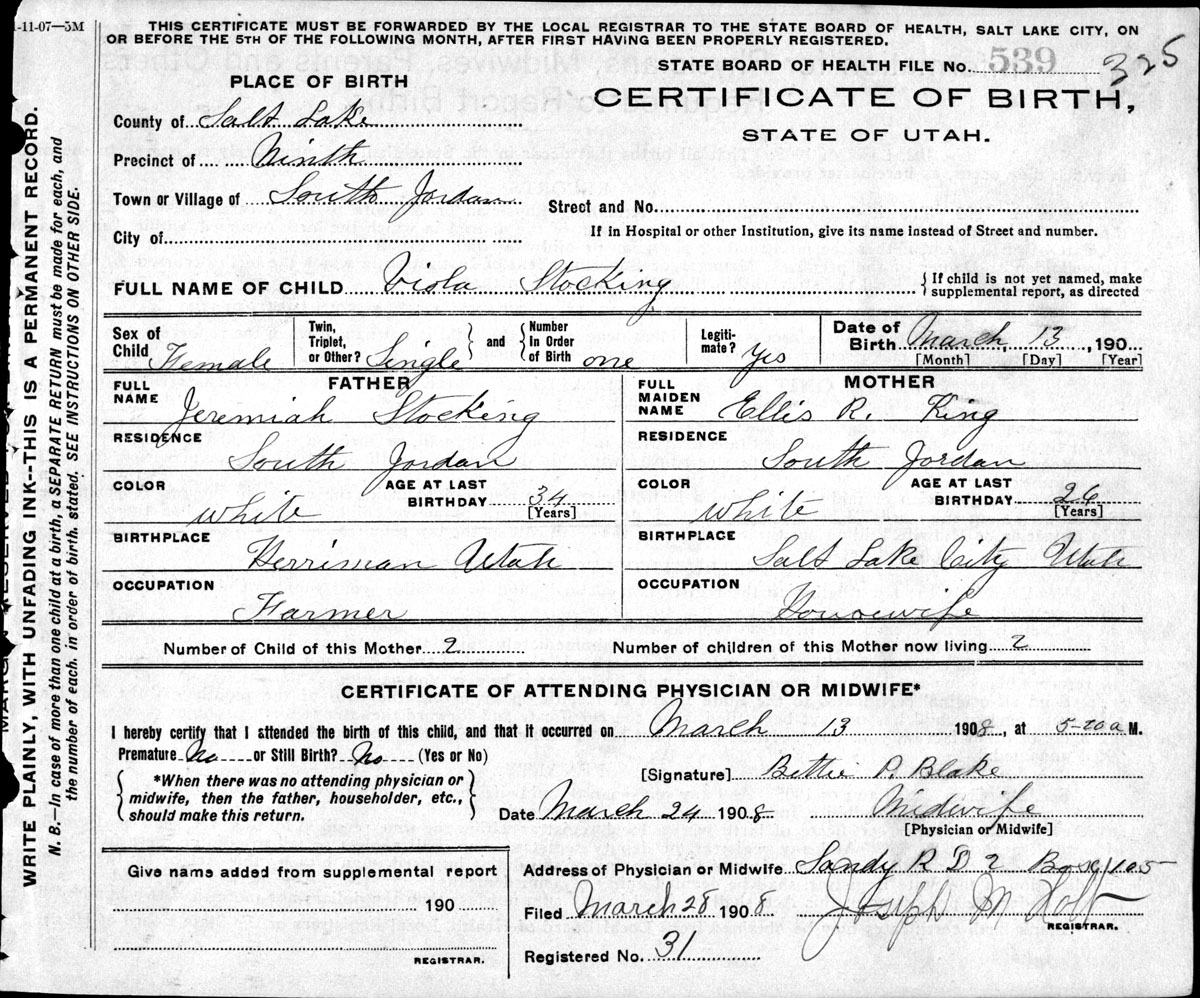 1-11-07—5M
THIS CERTIFICATE MUST BE FORWARDED BY THE LOCAL REGISTRAR TO THE STATE BOARD OF HEALTH, SALT LAKE CITY, ON
OR BEFORE THE 5TH OF THE FOLLOWING MONTH, AFTER FIRST HAVING BEEN PROPERLY REGISTERED.
STATE BOARD OF HEALTH FILE No. 539 325
PLACE OF BIRTH
CERTIFICATE OF BIRTH,
STATE OF UTAH.
County of Salt Lake
Precinct of Ninth
Town or Village of South Jordan
Street and No.
City of
If in Hospital or other Institution, give its name instead of Street and number.
FULL NAME OF CHILD Viola Stocking { If child is not yet named, make
supplemental report, as directed
Sex of Child Female
Twin, Triplet, or Other? Single } and { Number In Order of Birth one
Legiti-mate? Yes
Date of Birth March, 13, 190
[Month] [Day] [Year]
FATHER
FULL NAME Jeremiah Stocking
RESIDENCE South Jordan
COLOR White AGE AT LAST BIRTHDAY 34 [Years]
BIRTHPLACE Herriman Utah
OCCUPATION Farmer
MOTHER
FULL MAIDEN NAME Ellis R. King
RESIDENCE South Jordan
COLOR White AGE AT LAST BIRTHDAY 26 [Years]
BIRTHPLACE Salt Lake City Utah
OCCUPATION Housewife
Number of Child of this Mother 2 Number of children of this Mother now living 2
CERTIFICATE OF ATTENDING PHYSICIAN OR MIDWIFE*
I hereby certify that I attended the birth of this child, and that it occurred on March 13 1908, at 5-20 a M.
Premature No or Still Birth? No (Yes or No)
{ *When there was no attending physician or
midwife, then the father, householder, etc.,
should make this return. }
[Signature] Bettie P. Blake
Date March 24 1908 Midwife
[Physician or Midwife]
Give name added from supplemental report
190
REGISTRAR.
Address of Physician or Midwife Sandy R D 2 Box 105
Filed March 28 1908 Joseph M Holt
REGISTRAR.
Registered No. 31
WRITE PLAINLY, WITH UNFADING INK--THIS IS A PERMANENT RECORD.
N. B.—In case of more than one child at a birth, a SEPARATE RETURN must be made for each, and
the number of each, in order of birth, stated. SEE INSTRUCTIONS ON OTHER SIDE.